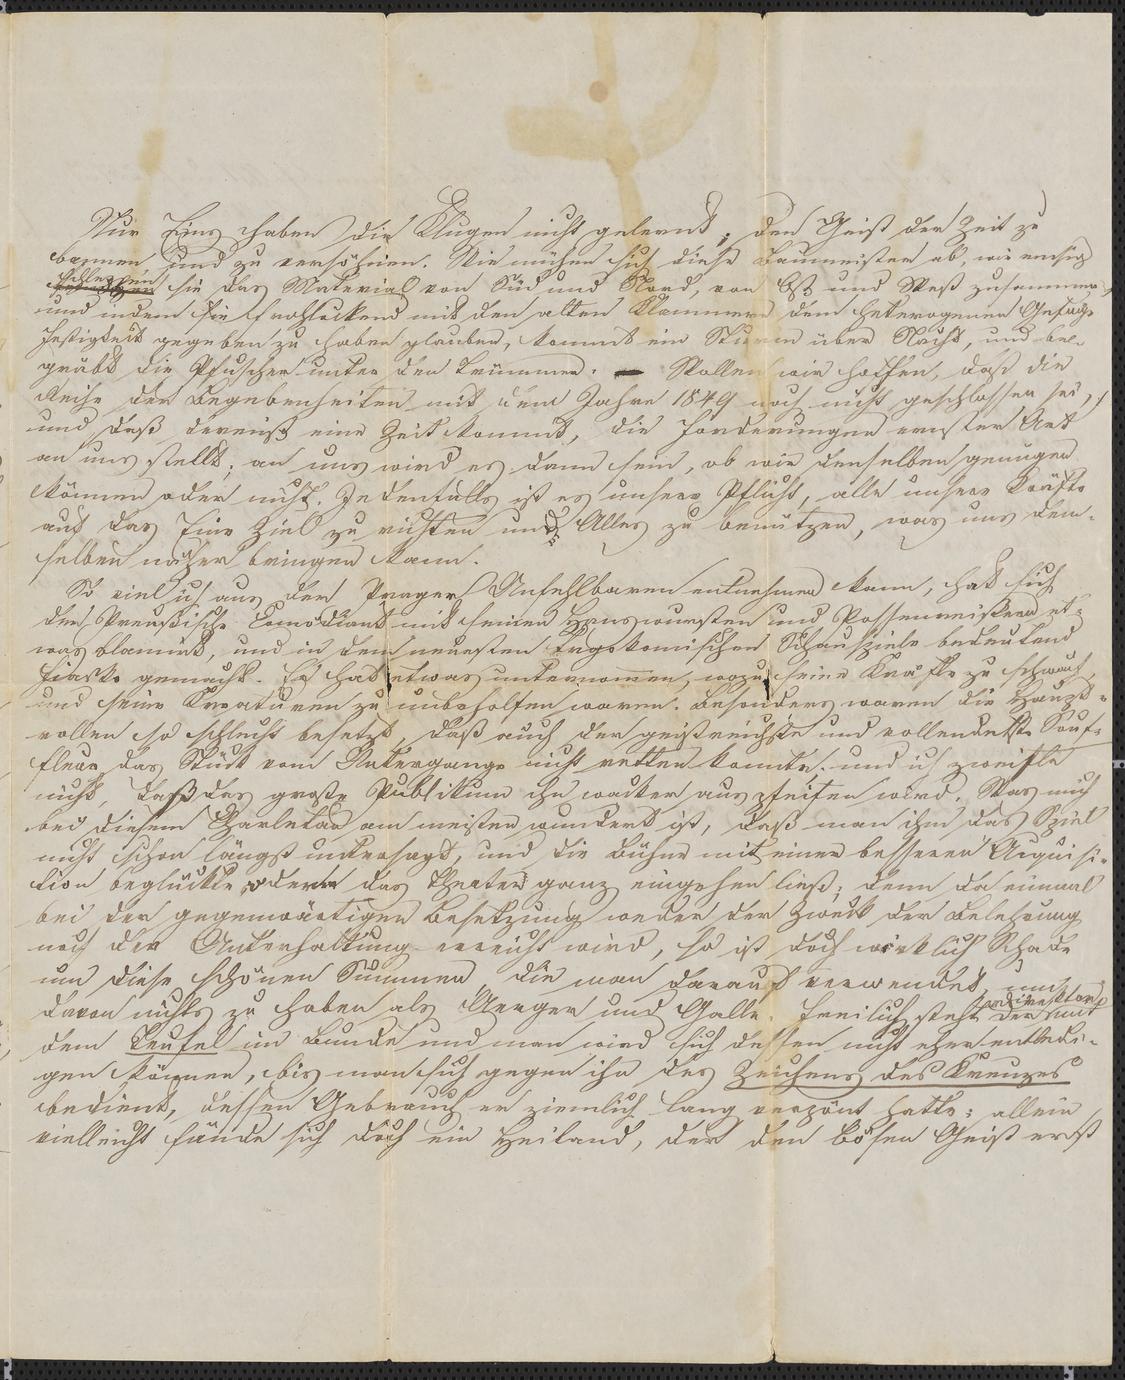 Nur Eins haben die Klugen nicht gelernt, den Geist der Zeit zu
bannen und zu versöhnen. Wie mühen sich diese Baumeister ab, wie emsig
schleppen sie das Material von Süd und Nord, von Ost und West zusammen,
und indem sie frohlockend mit den alten Klammern dem heterogenen Gefüge
Festigkeit gegeben zu haben glauben, kommt ein Sturm über Nacht, und be-
gräbt die Pfuscher unter den Trümmern. — Wollen wir hoffen, daß die
Reihe der Begebenheiten mit dem Jahre 1849 noch nicht geschlossen sei,
und daß dereinst eine Zeit kommt, die Forderungen ernster Art
an uns stellt; an uns wird es dann sein, ob wir denselben genügen
können oder nicht. Jedenfalls ist es unsere Pflicht, alle unsere Kräfte
auf das Eine Ziel zu richten und Alles zu benützen, was uns dem-
selben näher bringen kann.
So viel ich aus der Prager Unfehlbaren entnehmen kann, hat sich
der Preußische Comödiant mit seinen Hanswursten und Possenreißern et-
was blamirt, und in dem neuesten tragikomischen Schauspiele bedeutend
Fiasko gemacht. Er hat etwas unternommen, wozu seine Kräfte zu schwach
und seine Kreaturen zu unbeholfen waren. Besonders waren die Haupt-
rollen so schlecht besetzt, daß auch der geistreichste und vollendetste Souf-
fleur das Stück vom Untergange nicht retten konnte; und ich zweifle
nicht, daß das große Publikum ihn wacker auspfeifen wird. Was mich
bei diesem Charletan am meisten wundert ist, daß man ihm das Spiel
nicht schon längst untersagt, und die Bühne mit einer besseren Acquisi-
tion beglückte, oder das Theater ganz eingehen ließ; denn da einmal
bei der gegenwärtigen Besetzung weder der Zweck der Belehrung
noch der Unterhaltung erreicht wird, so ist doch wirklich Schade
um diese schönen Summen die man darauf verwendet, um
davon nichts zu haben als Aerger und Galle. Freilich steht der mit
dem Teufel im Bunde und man wird sich dessen nicht eher entledi-
gen können, bis man sich gegen ihn des Zeichens des Kreuzes
bedient, dessen Gebrauch er ziemlich lang verpönt hatte; allein
vielleicht fände sich doch ein Heiland, der den bösen Geist erst